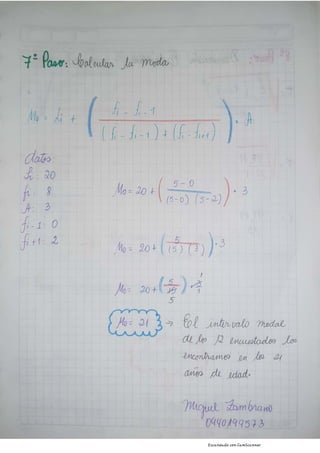 7º Paso: Calcular la moda
Mo = Li + ( fi - fi - 1 / ( fi - fi - 1 ) + ( fi - fi+1 ) ) · A
datos
Li: 20
fi: 8
A: 3
fi - 1: 0
fi + 1: 2
Mo = 20 + ( 5 - 0 / (5-0) (5-2) ) · 3
Mo = 20 + ( 5 / (5) (3) ) · 3
Mo = 20 + ( 5 / 15 ) · 3
1
1
5
Mo = 21 → El intervalo modal
de los 12 encuestados los
encontramos en los 21
años de edad.
Miguel Zambrano
0940199573
Escaneado con CamScanner